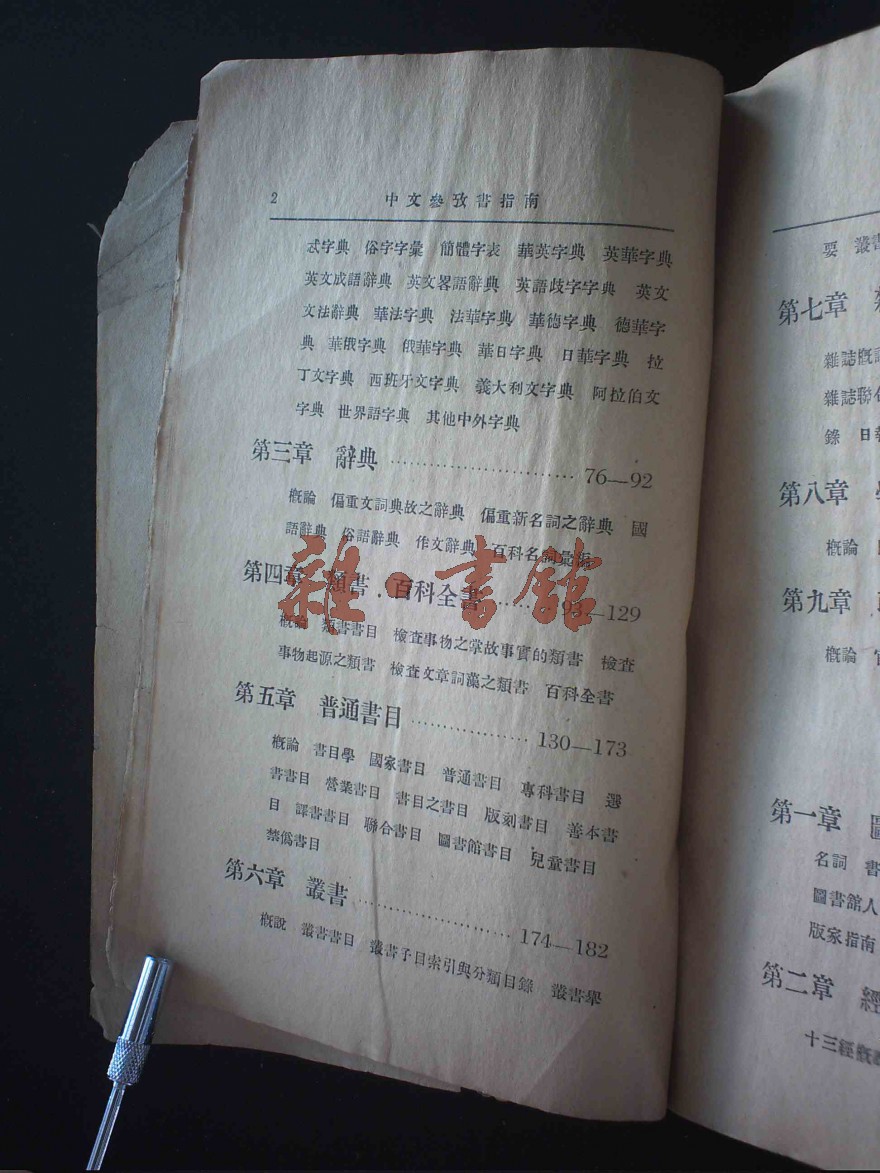 2 中文參攷書指南
忒字典 俗字字彙 簡體字表 華英字典 英華字典
英文成語辭典 英文畧語辭典 英語歧字字典 英文
文法辭典 華法字典 法華字典 華德字典 德華字
典 華俄字典 俄華字典 華日字典 日華字典 拉
丁文字典 西班牙文字典 義大利文字典 阿拉伯文
字典 世界語字典 其他中外字典
第三章 辭典 76—92
概論 偏重文詞典故之辭典 偏重新名詞之辭典 國
語辭典 俗語辭典 作文辭典 百科名詞彙編
第四章 類書．百科全書 93—129
概論 類書書目 檢查事物之掌故事實的類書 檢查
事物起源之類書 檢查文章詞藻之類書 百科全書
第五章 普通書目 130—173
概論 書目學 國家書目 普通書目 專科書目 選
書書目 營業書目 書目之書目 版刻書目 善本書
目 譯書書目 聯合書目 圖書館書目 兒童書目
禁僞書目
第六章 叢書 174—182
概說 叢書書目 叢書子目索引與分類目錄 叢書舉
要 叢書
第七章
雜誌概
雜誌聯
錄 日
第八章
概論
第九章
概論
第一章
名詞 書
圖書館人
版家指南
第二章 經
十三經概
雜·書館